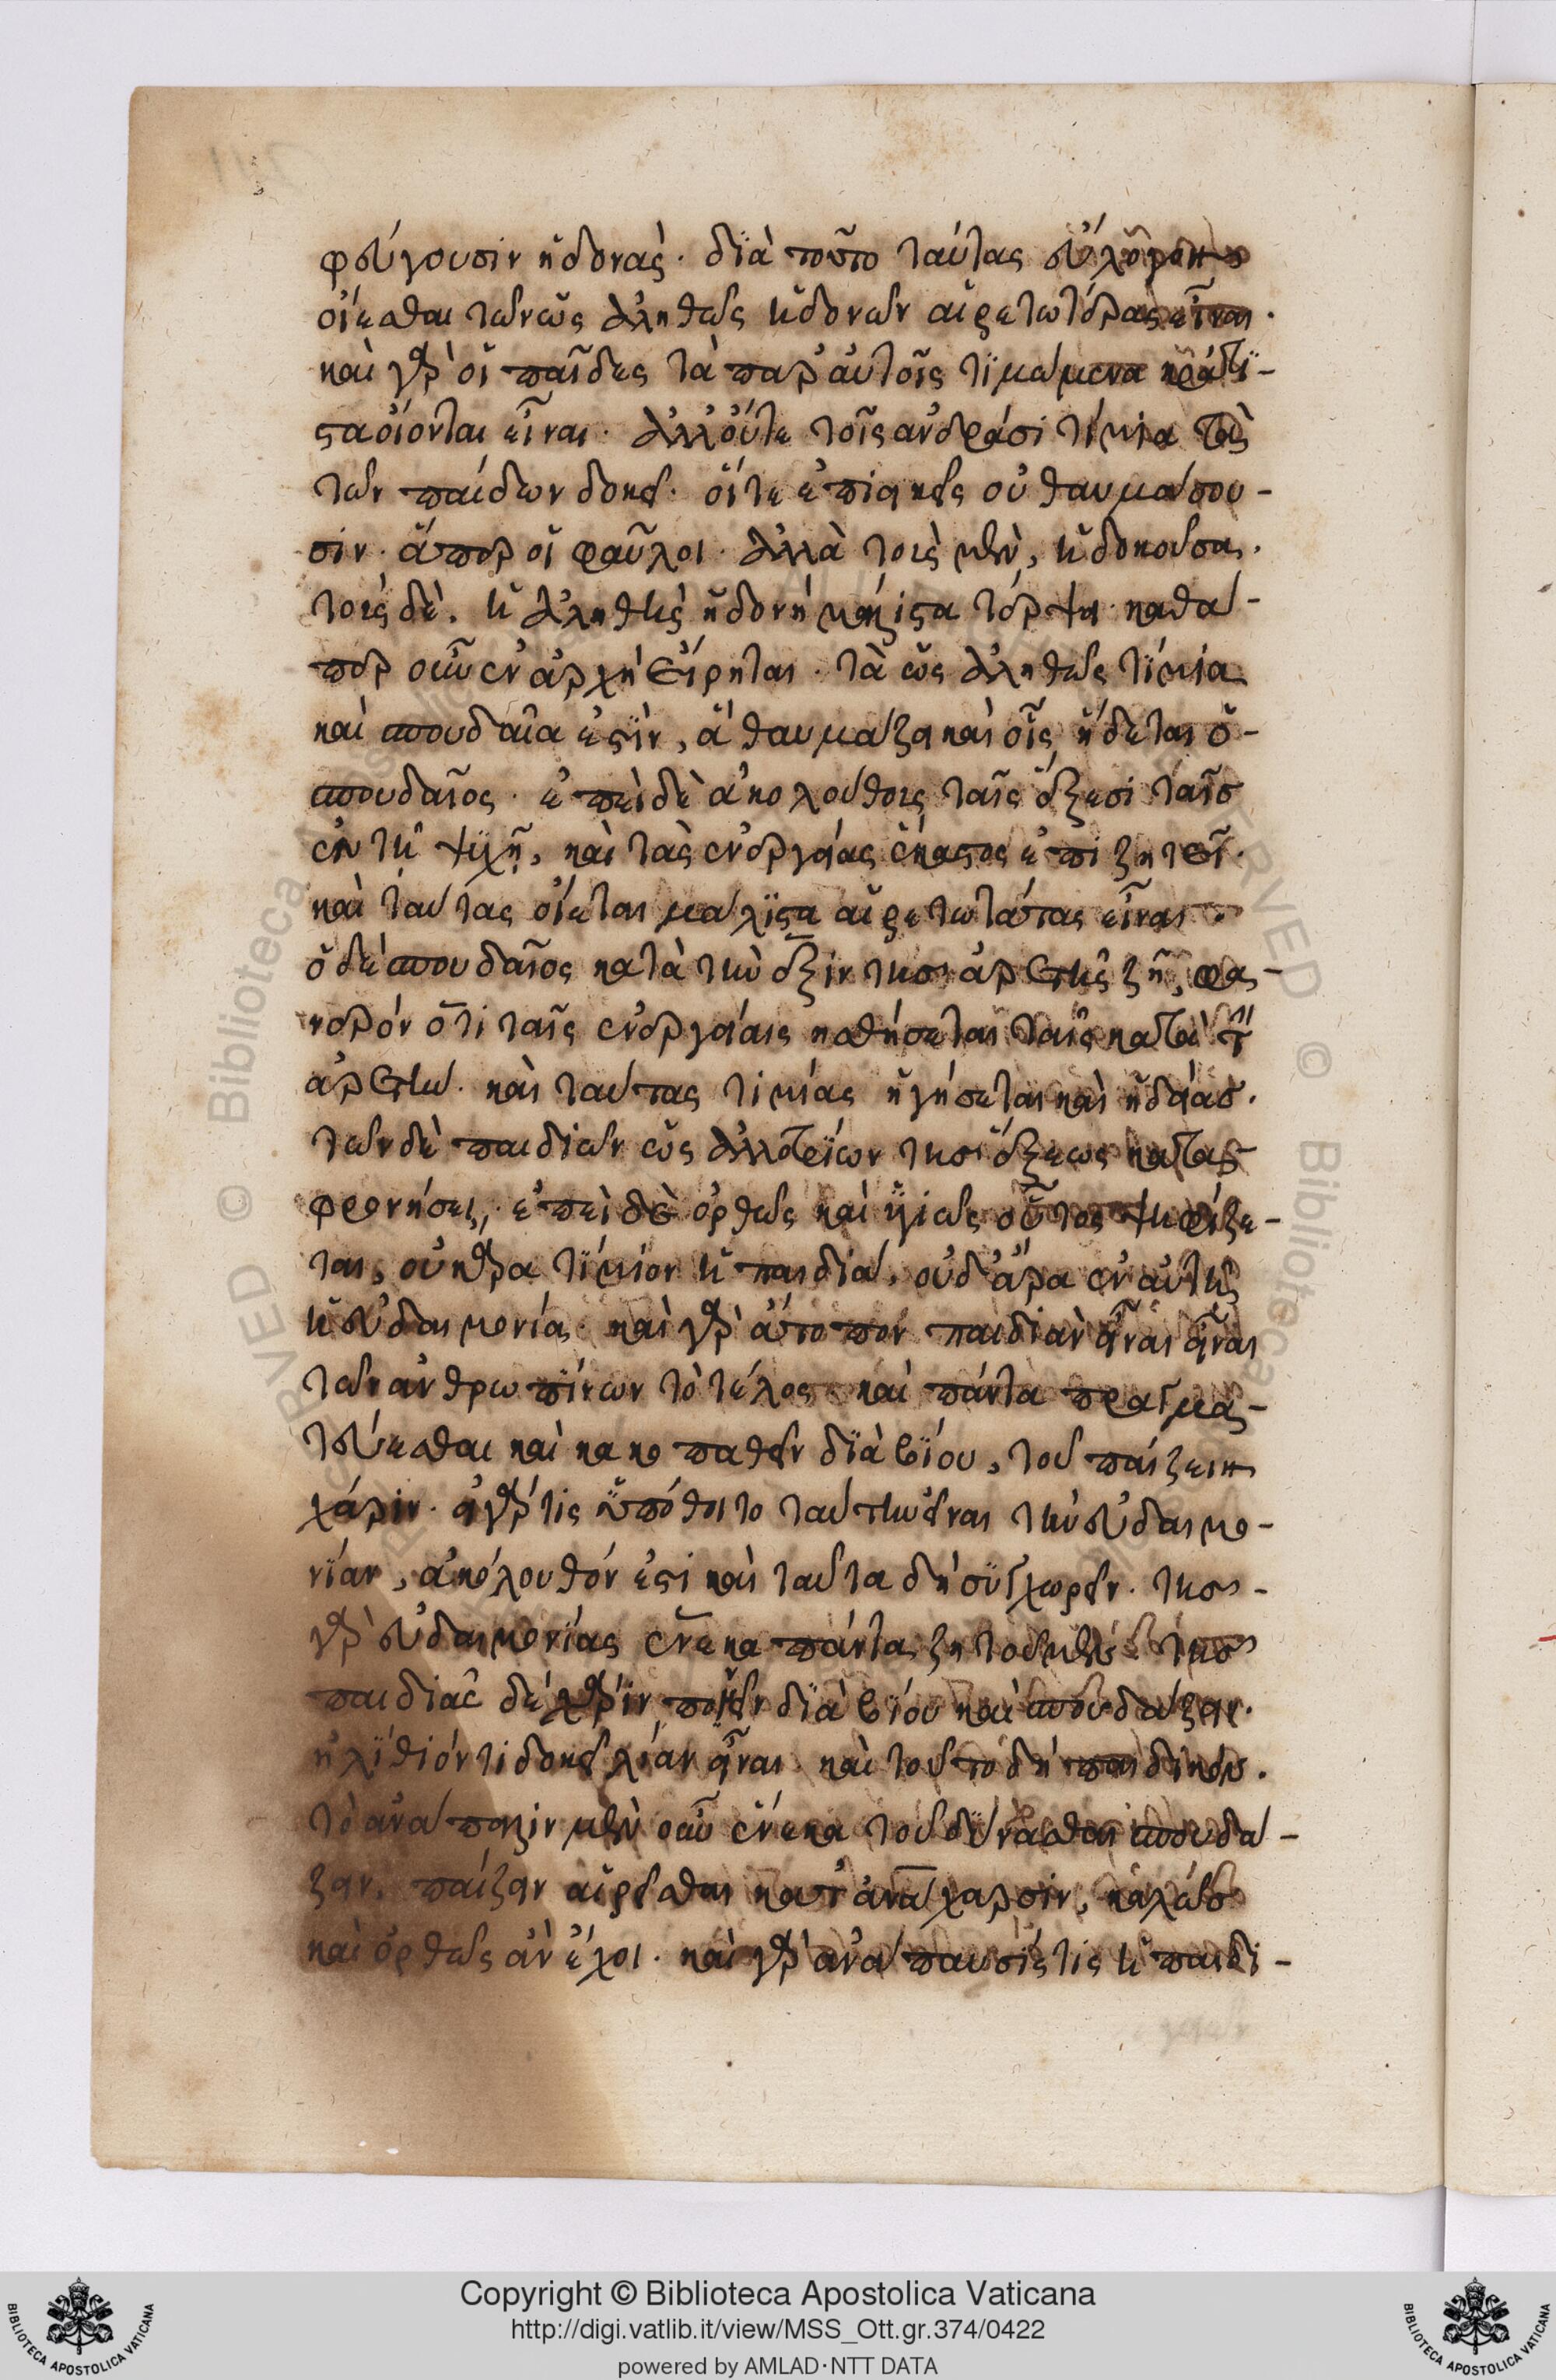 φεύγουσιν ἡδονὰς. διὰ τοῦτο ταύτας εὔλογον
οἴεσθαι τῶν ὡς ἀληθῶς ἡδονῶν αἱρετωτέρας εἶναι.
καὶ γὰρ οἱ παῖδες τὰ παρ' αὐτοῖς τιμώμενα κράτι-
στα οἴονται εἶναι. ἀλλ' οὔτε τοῖς ἀνδράσι τίμια τὰ
τῶν παίδων δοκεῖ. οἵ τε ἐπιεικεῖς οὐ θαυμάσου-
σιν. ἅπερ οἱ φαῦλοι. ἀλλὰ τοὶς μὲν, ἡ δοκοῦσα.
τοὶς δὲ. ἡ ἀληθὴς ἡδονή μάλιστα τέρψει. καθά-
περ οὖν ἐν ἀρχῇ εἴρηται. τὰ ὡς ἀληθῶς τίμια
καὶ σπουδαῖα ἐστὶν, ἃ θαυμάζει καὶ οἷς ἥδεται ὁ-
σπουδαῖος. ἐπεὶ δὲ ἀκολούθοις ταῖς ἕξεσι ταῖσ
ἐν τῇ ψυχῇ, καὶ τὰς ἐνεργείας ἕκαστος ἐπιζητεῖ.
καὶ ταύτας οἴεται μάλιστα αἱρετωτάτας εἶναι.
ὁ δὲ σπουδαῖος κατὰ τὴν ἕξιν τῆσ ἀρετῆς ζῇ, φα-
νερόν ὅτι ταῖς ἐνεργείαις ἡσθήσεται ταῖς κατὰ τὴν
ἀρετήν. καὶ ταύτας τιμίας ἡγήσεται καὶ ἡδείασ.
τῶν δὲ παιδιῶν ὡς ἀλλοτρίων τῆσ ἕξεως κατα-
φρονήσει, ἐπεὶ δὲ ὀρθῶς καὶ ὑγιῶς οὗτος ψηφίζε-
ται, οὐκ ἄρα τίμιον ἡ παιδιά, οὐδ' ἄρα ἐν αὐτῇ
ἡ εὐδαιμονία. καὶ γὰρ ἄτοπον παιδιὰν εἶναι εἶναι
τῶν ἀνθρωπίνων τὸ τέλος καὶ πάντα πραγμα-
τεύεσθαι καὶ κακοπαθεῖν διὰ βίου, τοῦ παίζειν
χάριν. εἰ γάρ τις ὑπόθοιτο ταύτην εἶναι τὴν εὐδαιμο-
νίαν, ἀκόλουθόν ἐστι καὶ ταῦτα δὴ συγχωρεῖν. τῆσ-
γὰρ εὐδαιμονίας ἕνεκα πάντα ζητοῦμεν τῆσ
παιδιᾶς δὲ χάριν ποιεῖν διὰ βίου καὶ σπουδάζειν.
ἠλίθιόν τι δοκεῖ λίαν εἶναι καὶ τοῦτο δή παιδικόν.
τὸ ἀνάπαλιν μὲν οὖν ἕνεκα τοῦ δύνασθαι σπουδά-
ζειν, παίζειν αἱρεῖσθαι κατ' ἀνάχαρσιν, καλῶσ
καὶ ὀρθῶς ἂν ἔχοι. καὶ γὰρ ἀνάπαυσίς τις ἡ παιδι-
Copyright © Biblioteca Apostolica Vaticana
http://digi.vatlib.it/view/MSS_Ott.gr.374/0422
powered by AMLAD·NTT DATA
BIBLIOTECA APOSTOLICA VATICANA
BIBLIOTECA APOSTOLICA VATICANA